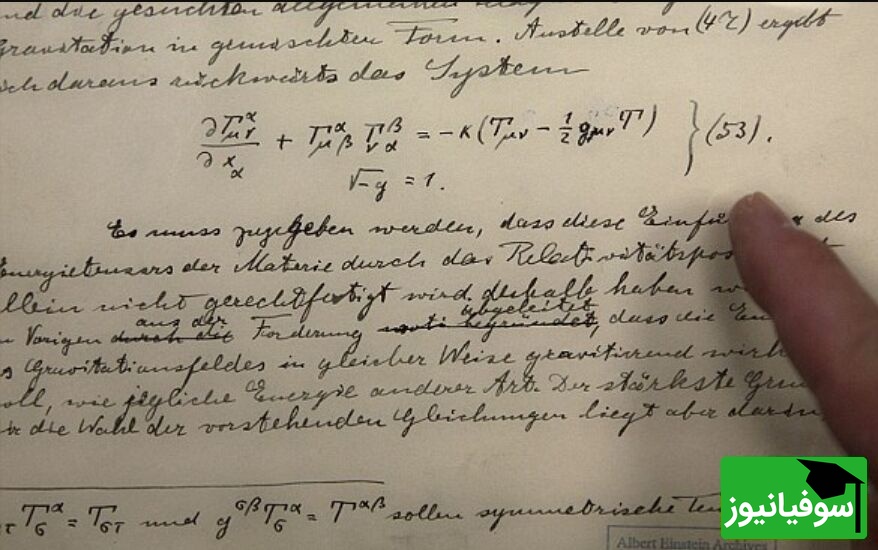 und die gesuchten allgemeinen
Gravitation in gemischter Form. Anstelle von (47) ergibt
sich daraus rückwärts das System
∂Γ^α_μν / ∂x_α + Γ^α_μβ Γ^β_να = -κ(T_μν - 1/2 g_μν T) } (53).
√-g = 1.
Es muss zugegeben werden, dass diese Einfü des
Energietensors der Materie durch das Relativitätspos
allein nicht gerechtfertigt wird. deshalb haben
Vorigen durch die aus der Forderung abgeleitet, dass die En
Gravitationsfeldes in gleicher Weise gravitierend wirk
soll, wie jegliche Energie anderer Art. Der stärkste Gru
die Wahl der vorstehenden Gleichungen liegt aber darin,
T^α_σ = T_στ und g^σβ T^α_σ = T^αβ sollen symmetrische Ten
Albert Einstein Archives
سوفیانیوز